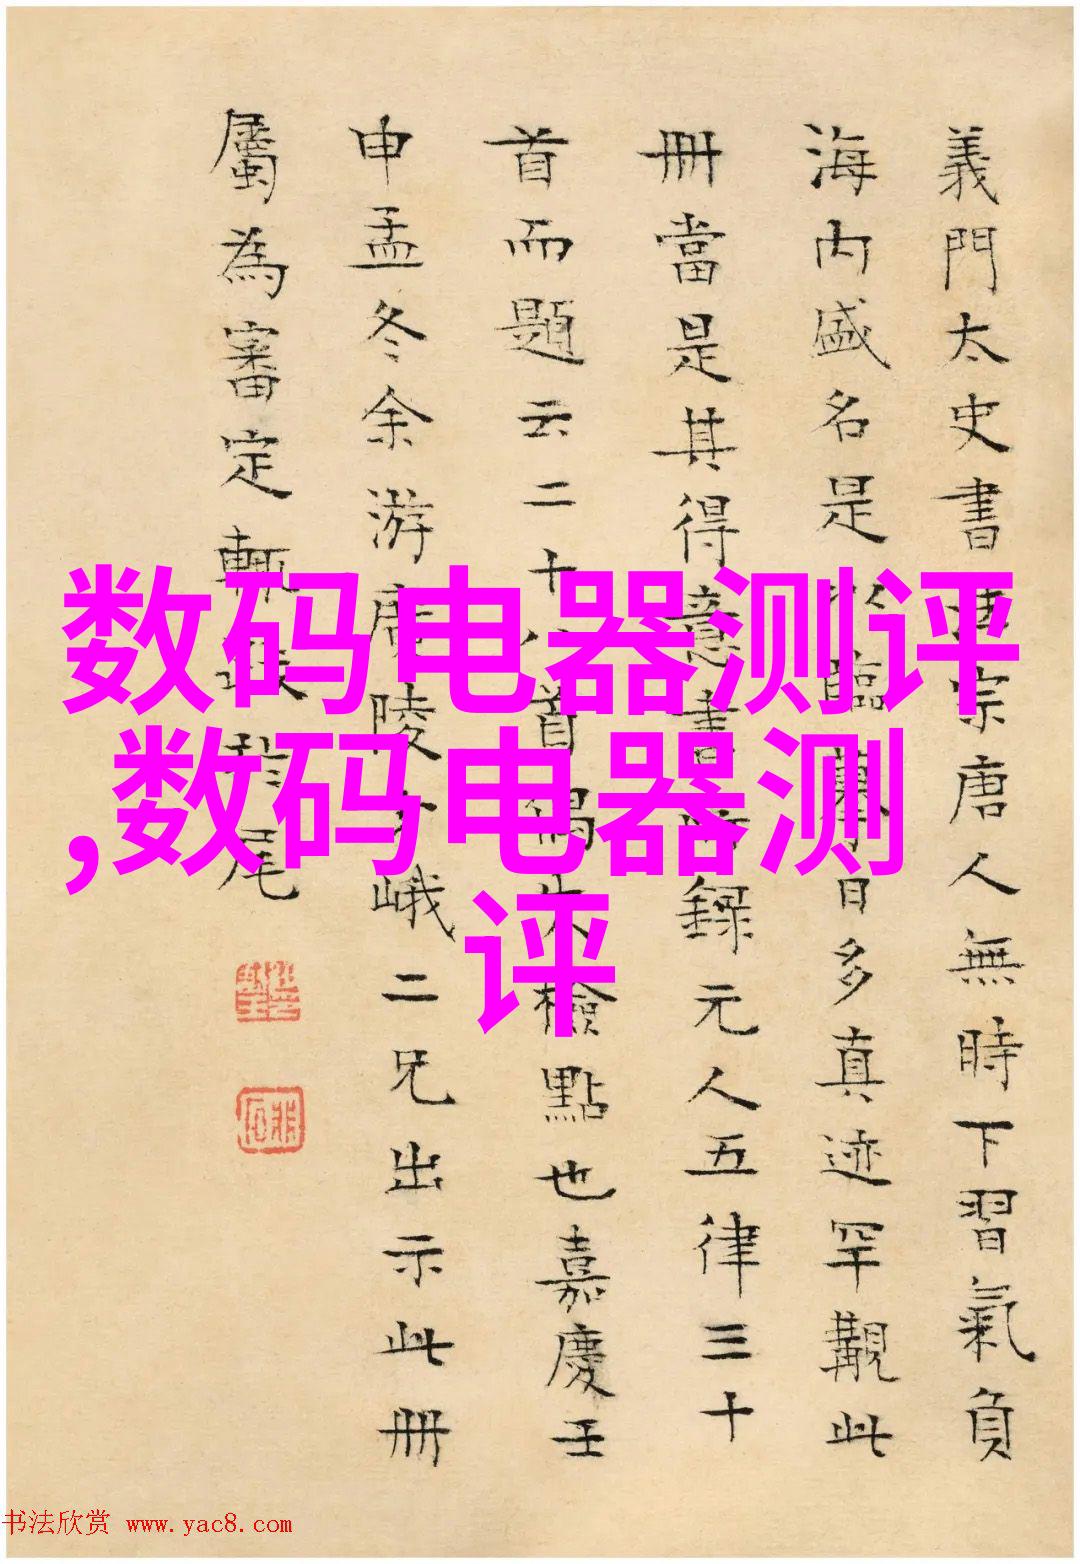 義門太史書宗唐人無時下習氣負
海内盛名是以臨摹日多真迹罕覯此
冊當是其得意書時録元人五律三十
首而題云二十八首偶失檢點也嘉慶壬
申孟冬余游廣陵峨二兄出示此冊
屬為審定輒跋於尾
数码电器测评
,数码电器测
评
书法欣赏 www.yac8.com